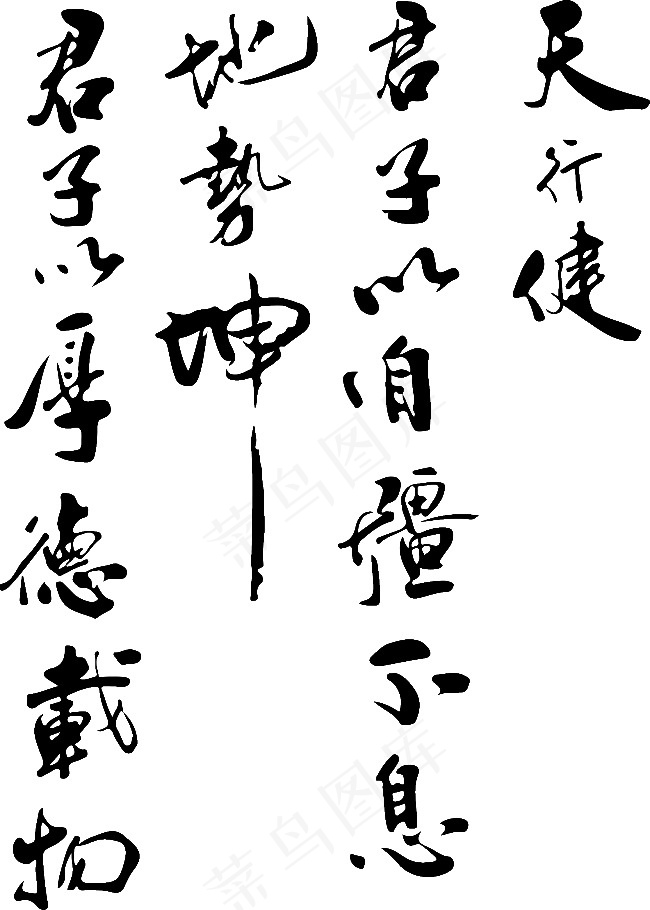 天行健
君子以自彊不息
地勢坤
君子以厚德載物
菜鸟图库
菜鸟图库
菜鸟图库